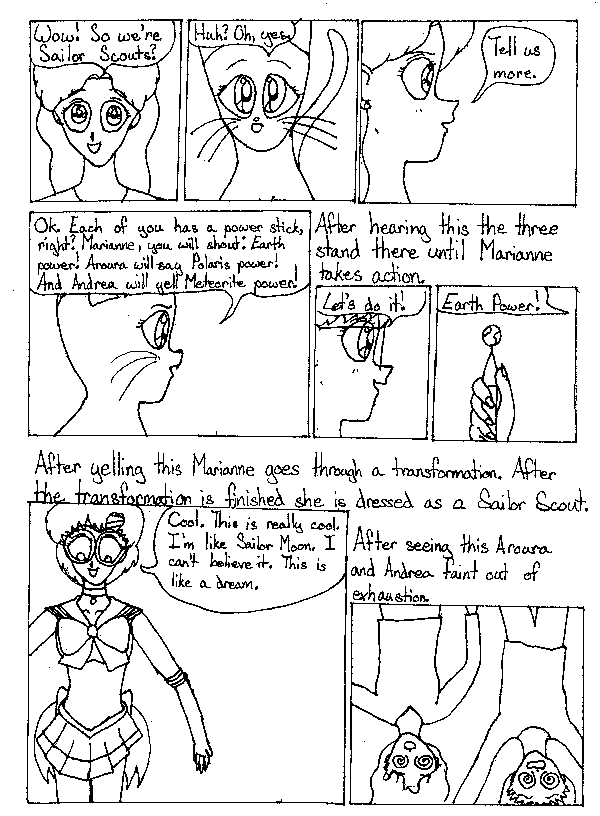 Wow! So we're
Sailor Scouts?
Huh? Oh, yes.
Tell us
more.
Ok. Each of you has a power stick,
right? Marianne, you will shout: Earth
power! Aroura will say Polaris power!
And Andrea will yell Meteorite power!
After hearing this the three
stand there until Marianne
takes action.
Let's do it!
Earth Power!
After yelling this Marianne goes through a transformation. After
the transformation is finished she is dressed as a Sailor Scout.
Cool. This is really cool.
I'm like Sailor Moon. I
can't believe it. This is
like a dream.
After seeing this Aroura
and Andrea faint out of
exhaustion.